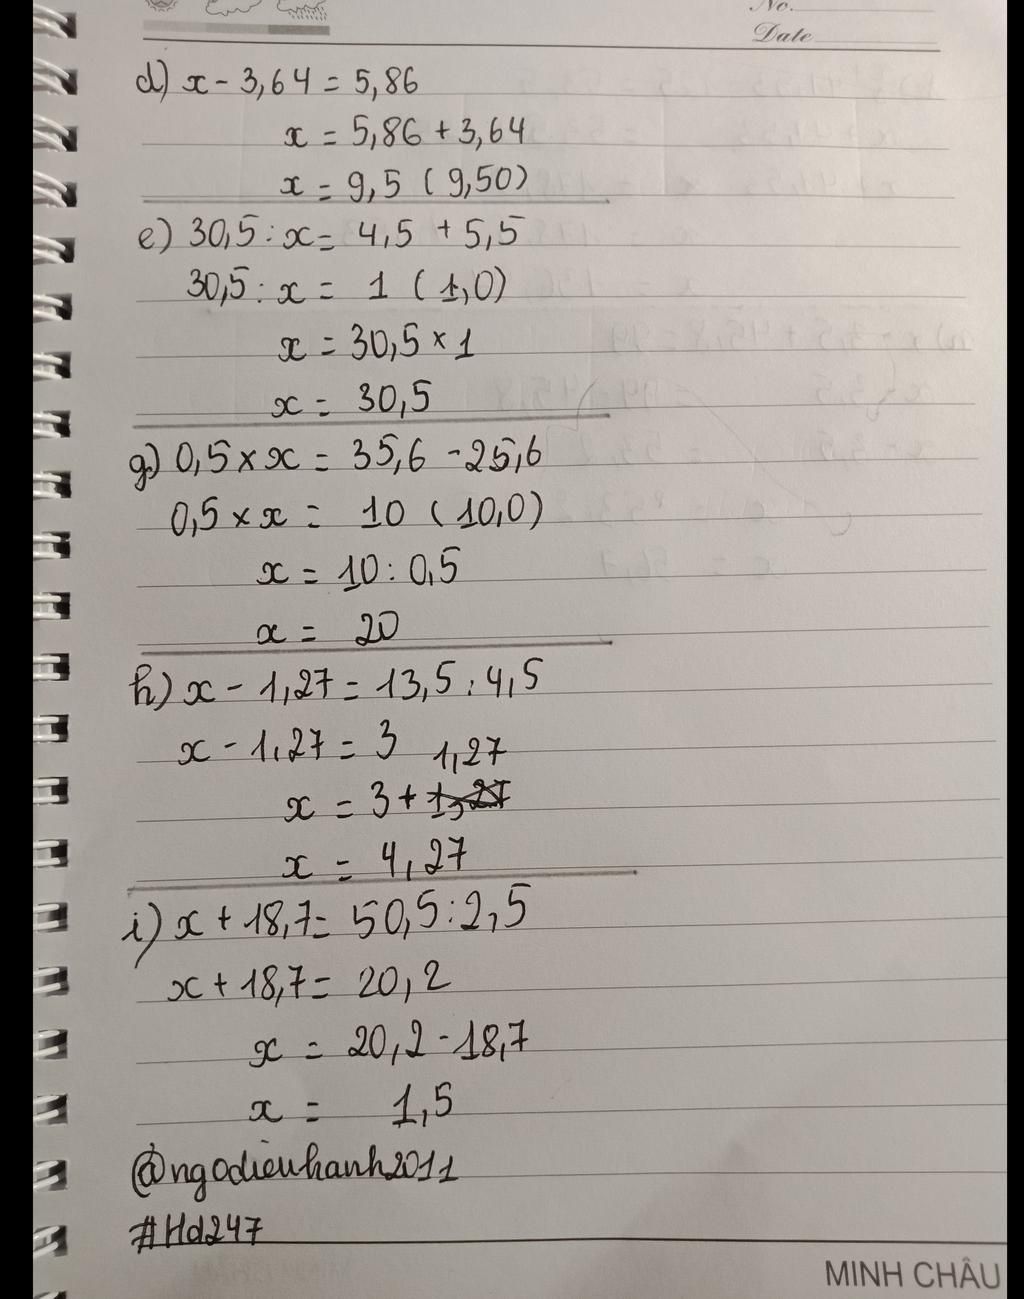 No.
Date
d) x - 3,64 = 5,86
x = 5,86 + 3,64
x = 9,5 (9,50)
e) 30,5 : x = 4,5 + 5,5
30,5 : x = 1 (1,0)
x = 30,5 × 1
x = 30,5
g) 0,5 × x = 35,6 - 25,6
0,5 × x = 10 (10,0)
x = 10 : 0,5
x = 20
h) x - 1,27 = 13,5 : 4,5
x - 1,27 = 3
x = 3 + 1,27
x = 4,27
i) x + 18,7 = 50,5 : 2,5
x + 18,7 = 20,2
x = 20,2 - 18,7
x = 1,5
@ngodieuhanh2011
#Hd247
MINH CHÂU